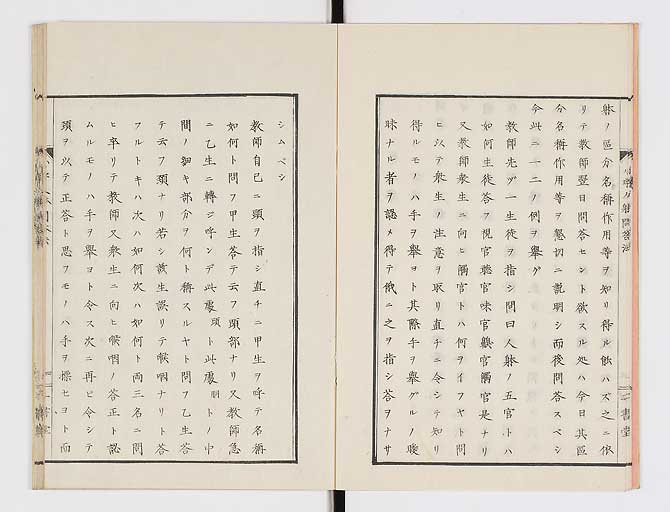 躰ノ區分名稱作用等ヲ知リ得ル飮ハズ之ニ依
リテ教師翌日問答セント欲スル処ハ今日其區
分名稱作用等ヲ懇切ニ説明シ而後問答スベシ
今此ニ一二ノ例ヲ擧グ
教師先ヅ一生徒ヲ指シ問曰人躰ノ五官トハ
如何生徒答フ視官聽官味官嗅官觸官是ナリ
又教師衆生ニ向ヒ觸官トハ何ヲイフヤト問
ヒ以テ衆生ノ注意ヲ取リ直チニ令シテ知リ
得ルモノハ手ヲ擧ヨト其際手ヲ擧グルノ曖
昧ナル者ヲ認メ得テ俄ニ之ヲ指シ答ヲナサ
シムベシ
教師自己ニ頭ヲ指シ直チニ甲生ヲ呼テ名稱
如何ト問フ甲生答テ云フ頭部ナリ又教師急
ニ乙生ニ轉ジ呼ンデ此處頭ト此處胴トノ中
間ノ細キ部分ヲ何ト稱スルヤト問フ乙生答
テ云フ頸ナリ若シ該生誤リテ喉咽ナリト答
フルトキハ次ハ如何次ハ如何ト両三名ニ問
ヒ卒リテ教師又衆生ニ向ヒ喉咽ノ答正ト認
ムルモノハ手ヲ擧ヨト令ス次ニ再ビ令シテ
頸ヲ以テ正答ト思フモノハ手ヲ標セヨト而